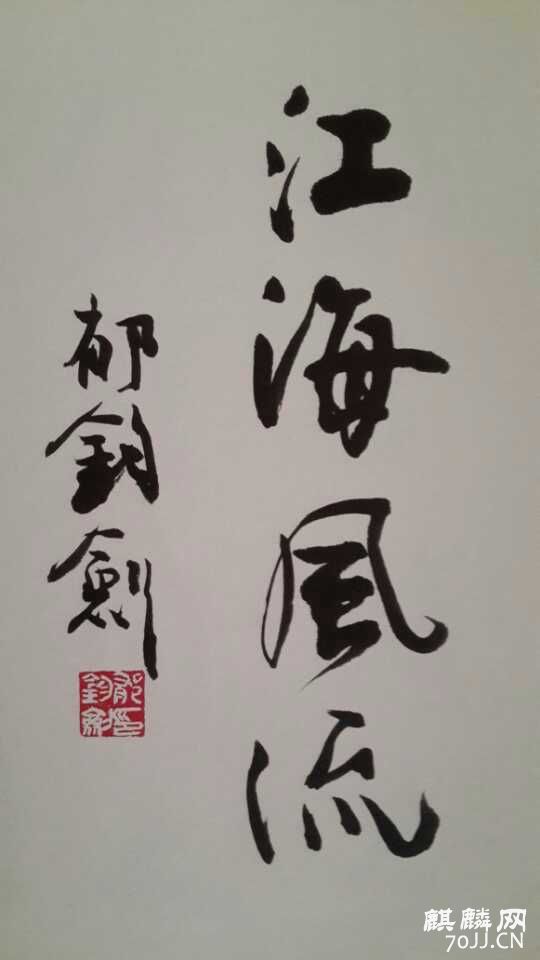 江海風流
郁鈞劍
麒麟网
70JJ.CN